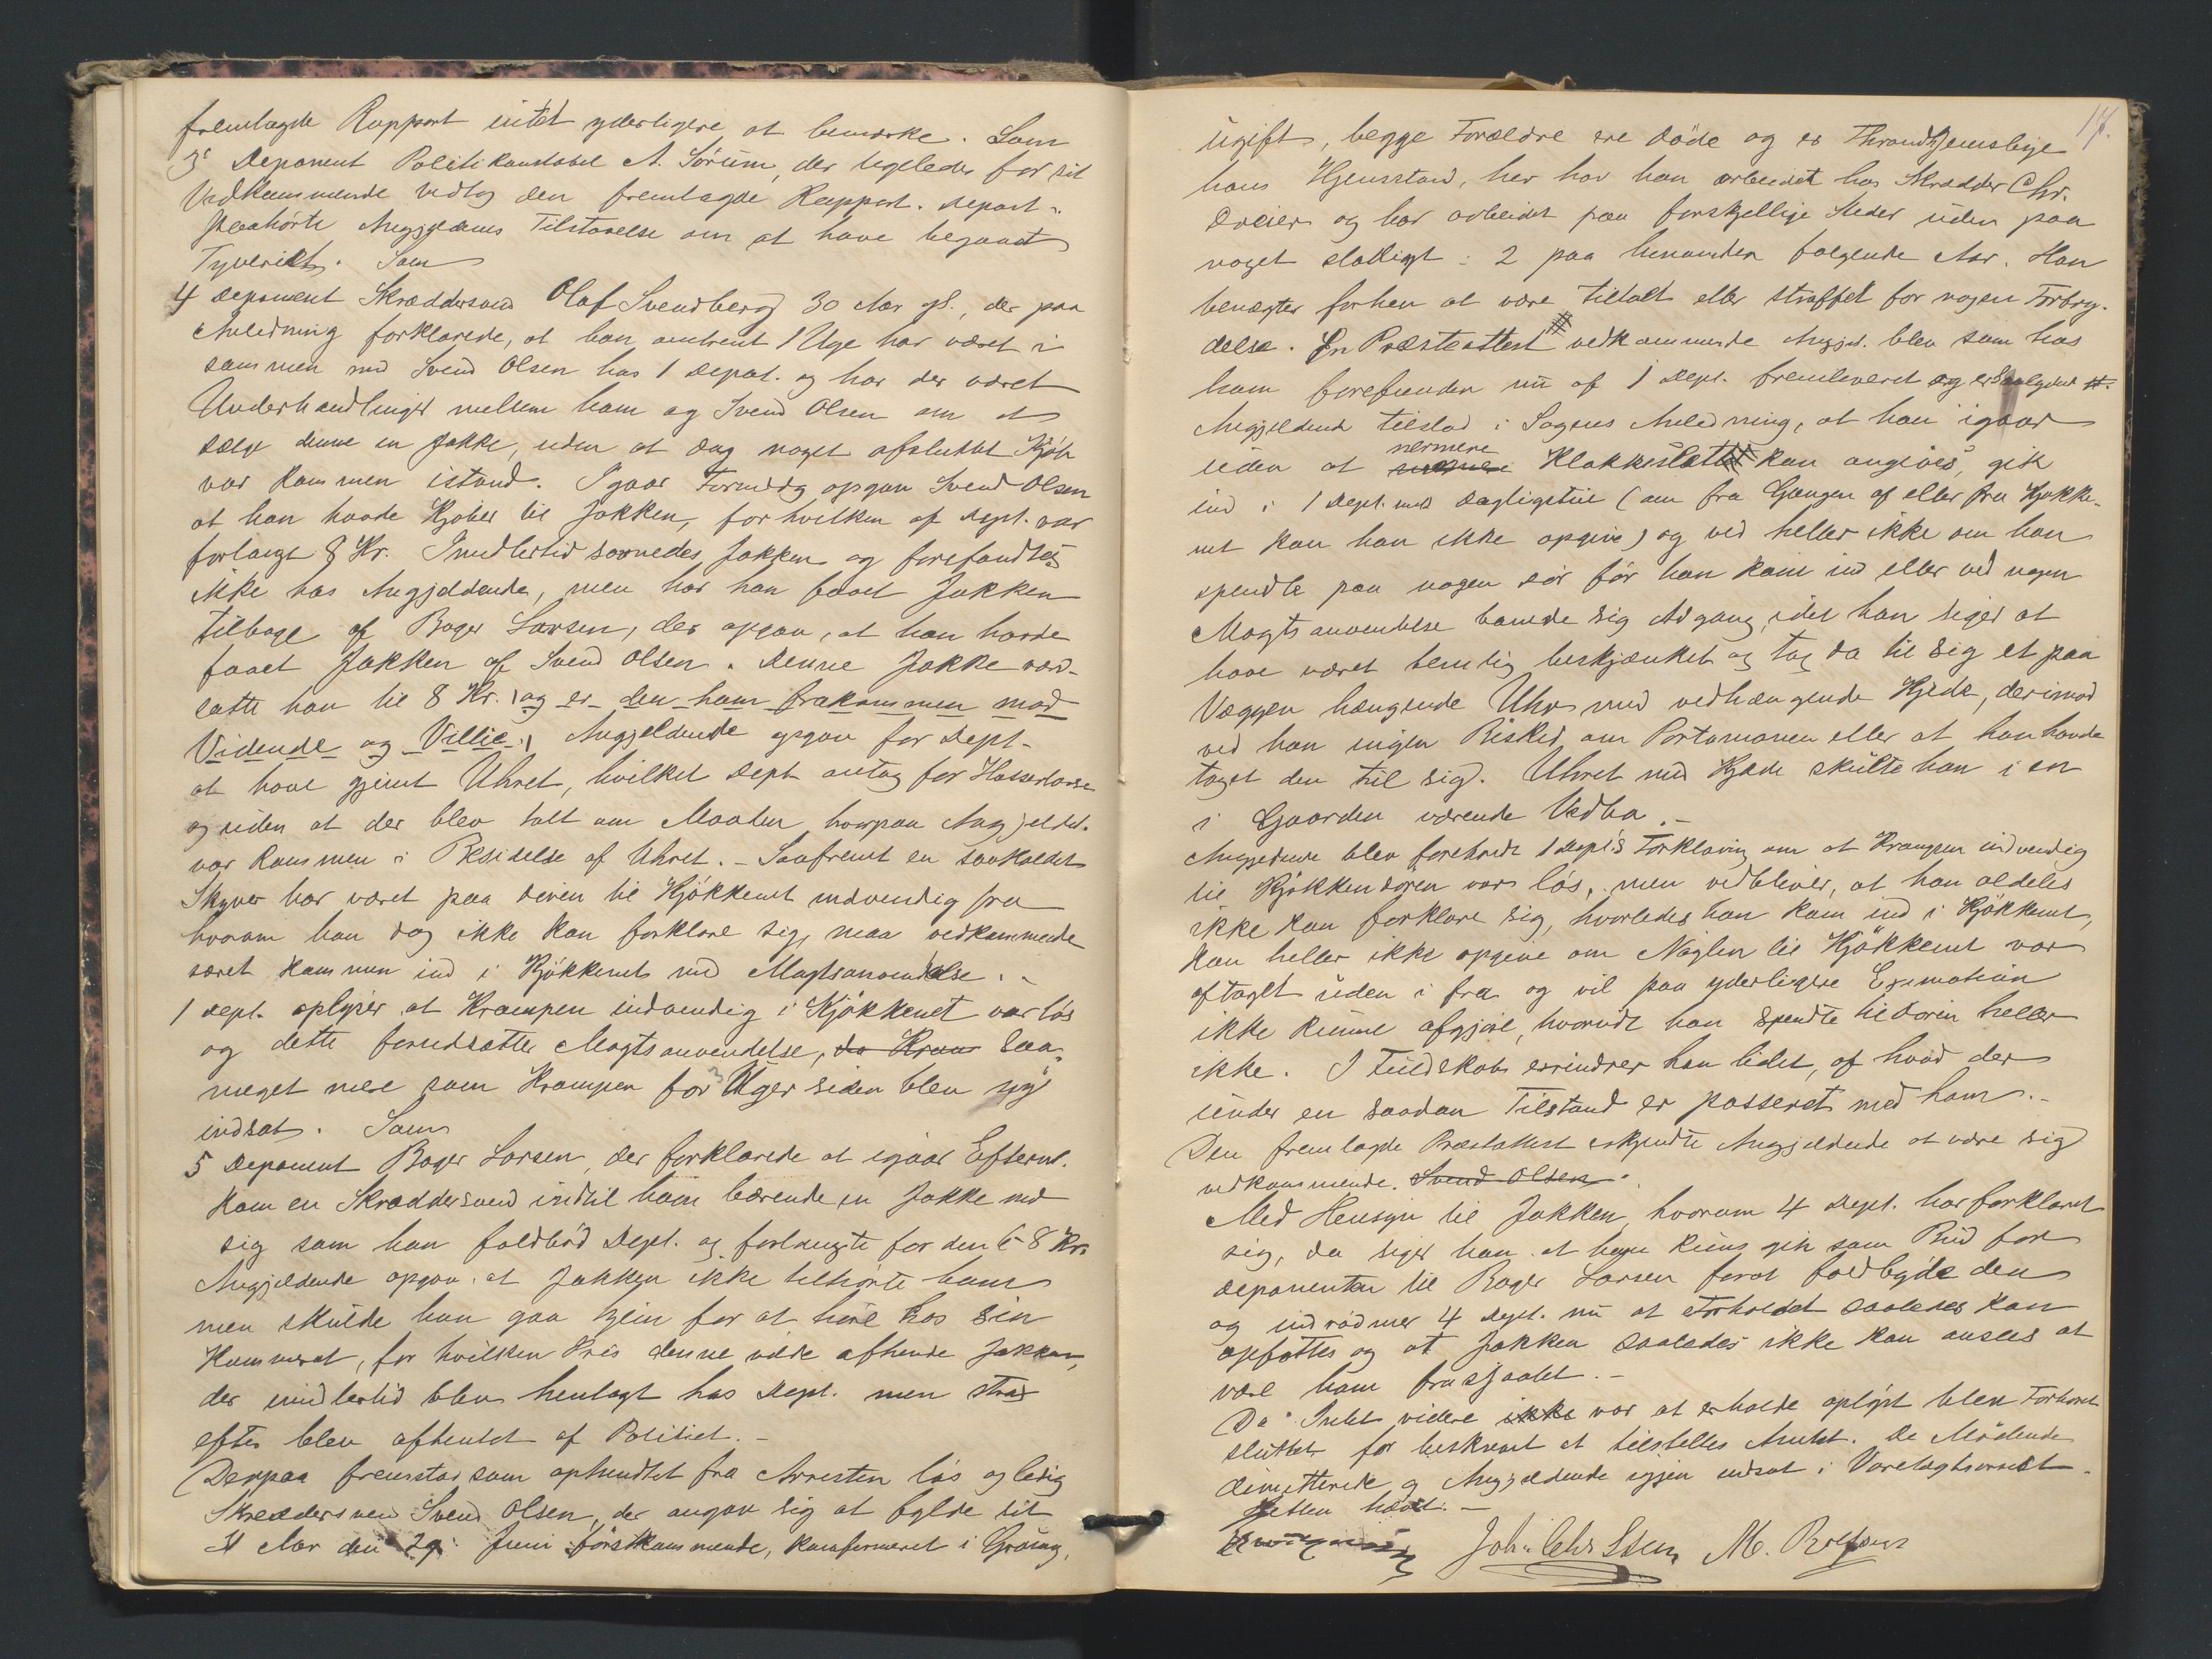 fremlagde Rapport intet yderligere at bemærke. Som
3 Deponent Politikonstabel A. Sörum, der ligeledes for sit
Vedkommende vedtog den fremlagde Rapport. Depont.
paahörte Angjældenes Tilstaaelse om at have begaaet
Tyveriet. Som
4 Deponent Skræddersvend Olaf Svendberg 30 Aar gl., der paa
Anledning forklarede, at han omtrent 1 Uge har været i
sammen med Svend Olsen hos 1 Depot. og har der været
Underhandlinger mellem ham og Svend Olsen om at
sælge denne en Jakke, uden at dog noget afsluttet Kjöb
var kommen istand. Igaar Formidg opgav Svend Olsen
at han havde Kjöber til Jakken, for hvilken af Dept. var
forlangt 8 Kr. Imidlertid savnedes Jakken og forefandtes
ikke hos Angjeldende, men har han faaet Jakken
tilbage af Bager Larsen, der opgav, at han havde
faaet Jakken af Svend Olsen. Denne Jakke værd-
satte han til 8 Kr. og er den ham frakommen mod
Vidende og Villie. Angjeldende opgav for Dept.
at have gjemt Uhret, hvilket Dept antog for
og uden at der blev talt om Maaden hvorpaa Angjeldd.
var kommen i Besidelse af Uhret. – Saafremt en saakaldet
Skyver har været paa Dören til Kjökkenet indvendig fra
hvorom han dog ikke kan forklare sig, maa vedkommende
været kommen ind i Kjökkenet med Magtsanvendelse. –
1 Dept. oplyser at Krampen indvendig i Kjökkenet var lös
og dette forudsætter Magtsanvendelse, da Kram saa
meget mere som Krampen for 3 Uger siden blev ny
indsat. Som
5 Deponent Bager Larsen, der forklarede at igaar Efterm.
kom en Skræddersvend indtil ham bærende en Jakke med
sig som han faldböd Dept. og forlangte for den 6-8 Kr.
Angjeldende opgav at Jakken ikke tilhörte ham
men skulde han gaa hjem for at höre hos sin
Kammerat, for hvilken Pris denne vilde afhende Jakken,
der imidlertid blev henlagt hos Dept. men strax
efter blev afhentet af Politiet. –
Derpaa fremstod som ophendtet fra Arresten lös og ledig
Skræddersvend Svend Olsen, der angav sig at fylde sit
Aar den 29 Juni förstkommende, konfirmeret i Gröung,
17.
ugift, begge Forældre ere döde og er Throndhjemslige
hans Hjemstavd, her har han arbeidet hos Skrædder Chr.
Dreier og har arbeidet paa forskjellige Steder uden paa
noget statligt : 2 paa hinanden fölgende Aar. Han
benægter forhen at være tiltalt eller straffet for nogen Forbry-
delse. En Præsteattest vedkommende Angjel. blev som hos
ham forefunden nu af 1 Dept. fremleveret og er saalydende
Angjeldende tilstod i Sagens Anledning, at han igaar
uden at nærmere Klokkeslæt kan angives, gik
ind i 1 Dept. med Dagligstue (om fra Gangen af eller fra Kjøkke-
net kan han ikke opgive) og ved heller ikke om han
spendte paa nogen dör för han kom ind eller ved nogen
Magtsanvendelse banede sig Adgang, idet han siger at
have været temelig beskjænket og tog da til sig et paa
Væggen hængende Uhr med vedhængende Kjede, derimod
ved han ingen Besked om Portomonen eller at han havde
taget den til sig. Uhret med Kjæde skulte han i en
i Gaarden værende Vedbo. –
Angjeldende blev foreholdt 1 Dept's Forklaring om at Krampen indvendig
til Kjökkendören var lös, men vedbliver, at han aldeles
ikke kan forklare sig, hvorledes han kom ind i Kjökkenet,
kan heller ikke opgive om Nöglen til Kjökkenet var
aftaget uden i fra og vil paa yderligere Exmation
ikke kunne afgjöre, hvorvidt han spendte til Dören heller
ikke. I Fuldskab erindrer han lidet, af hvad der
under en saadan Tilstand er passeret med ham. –
Den fremlagde Præsteattest erkjendte Angjældende at være sig
vedkommende. Svend Olsen.
Med Hensyn til Jakken, hvorom 4 Dept. har forklaret
sig, da siger han at han kuns gik som Bud for
Deponenten til Bager Larsen forat faldbyde den
og indrömmer 4 Dept. nu at Forholdet saaledes kan
opfattes og at Jakken saaledes ikke kan ansees at
være ham frastjaalet. –
Da Intet videre ikke var at erholde oplyst blev Forhöret
sluttet for beskrevet at tilstilles Amtet. De Mödende
dimitterede og Angjældende igjen indsat i Varetægtsarrest.
Retten hævet. –
John Chr Steen M. Rolfsen